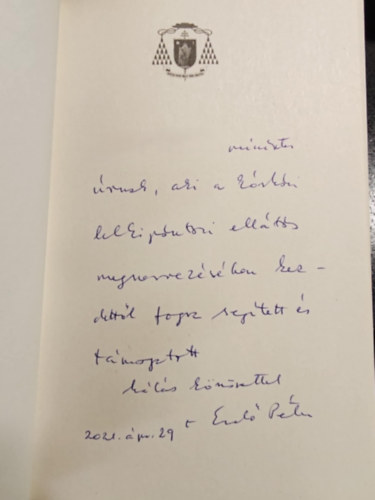 miniszter
úrnak, aki a kórházi
lelkipásztori ellátás
megszervezésében kez-
dettől fogva segített és
támogatott
hálás köszönettel
2021. ápr. 29 + Erdő Péter